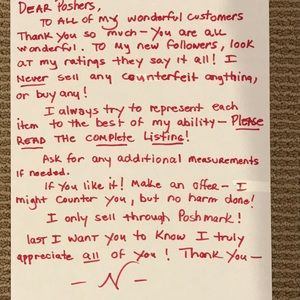 DEAR Poshers,
To ALL of my wonderful customers
Thank you so much – You are all
wonderful. To my new followers, look
at my ratings they say it all! I
Never sell any counterfeit anything,
or buy any!
I always try to represent each
item to the best of my ability – Please
READ The complete Listing!
Ask for any additional measurements
if needed.
If you like it! Make an offer – I
might counter you, but no harm done!
I only sell through Poshmark!
last I want you to know I truly
appreciate all of you! Thank you –
– N –